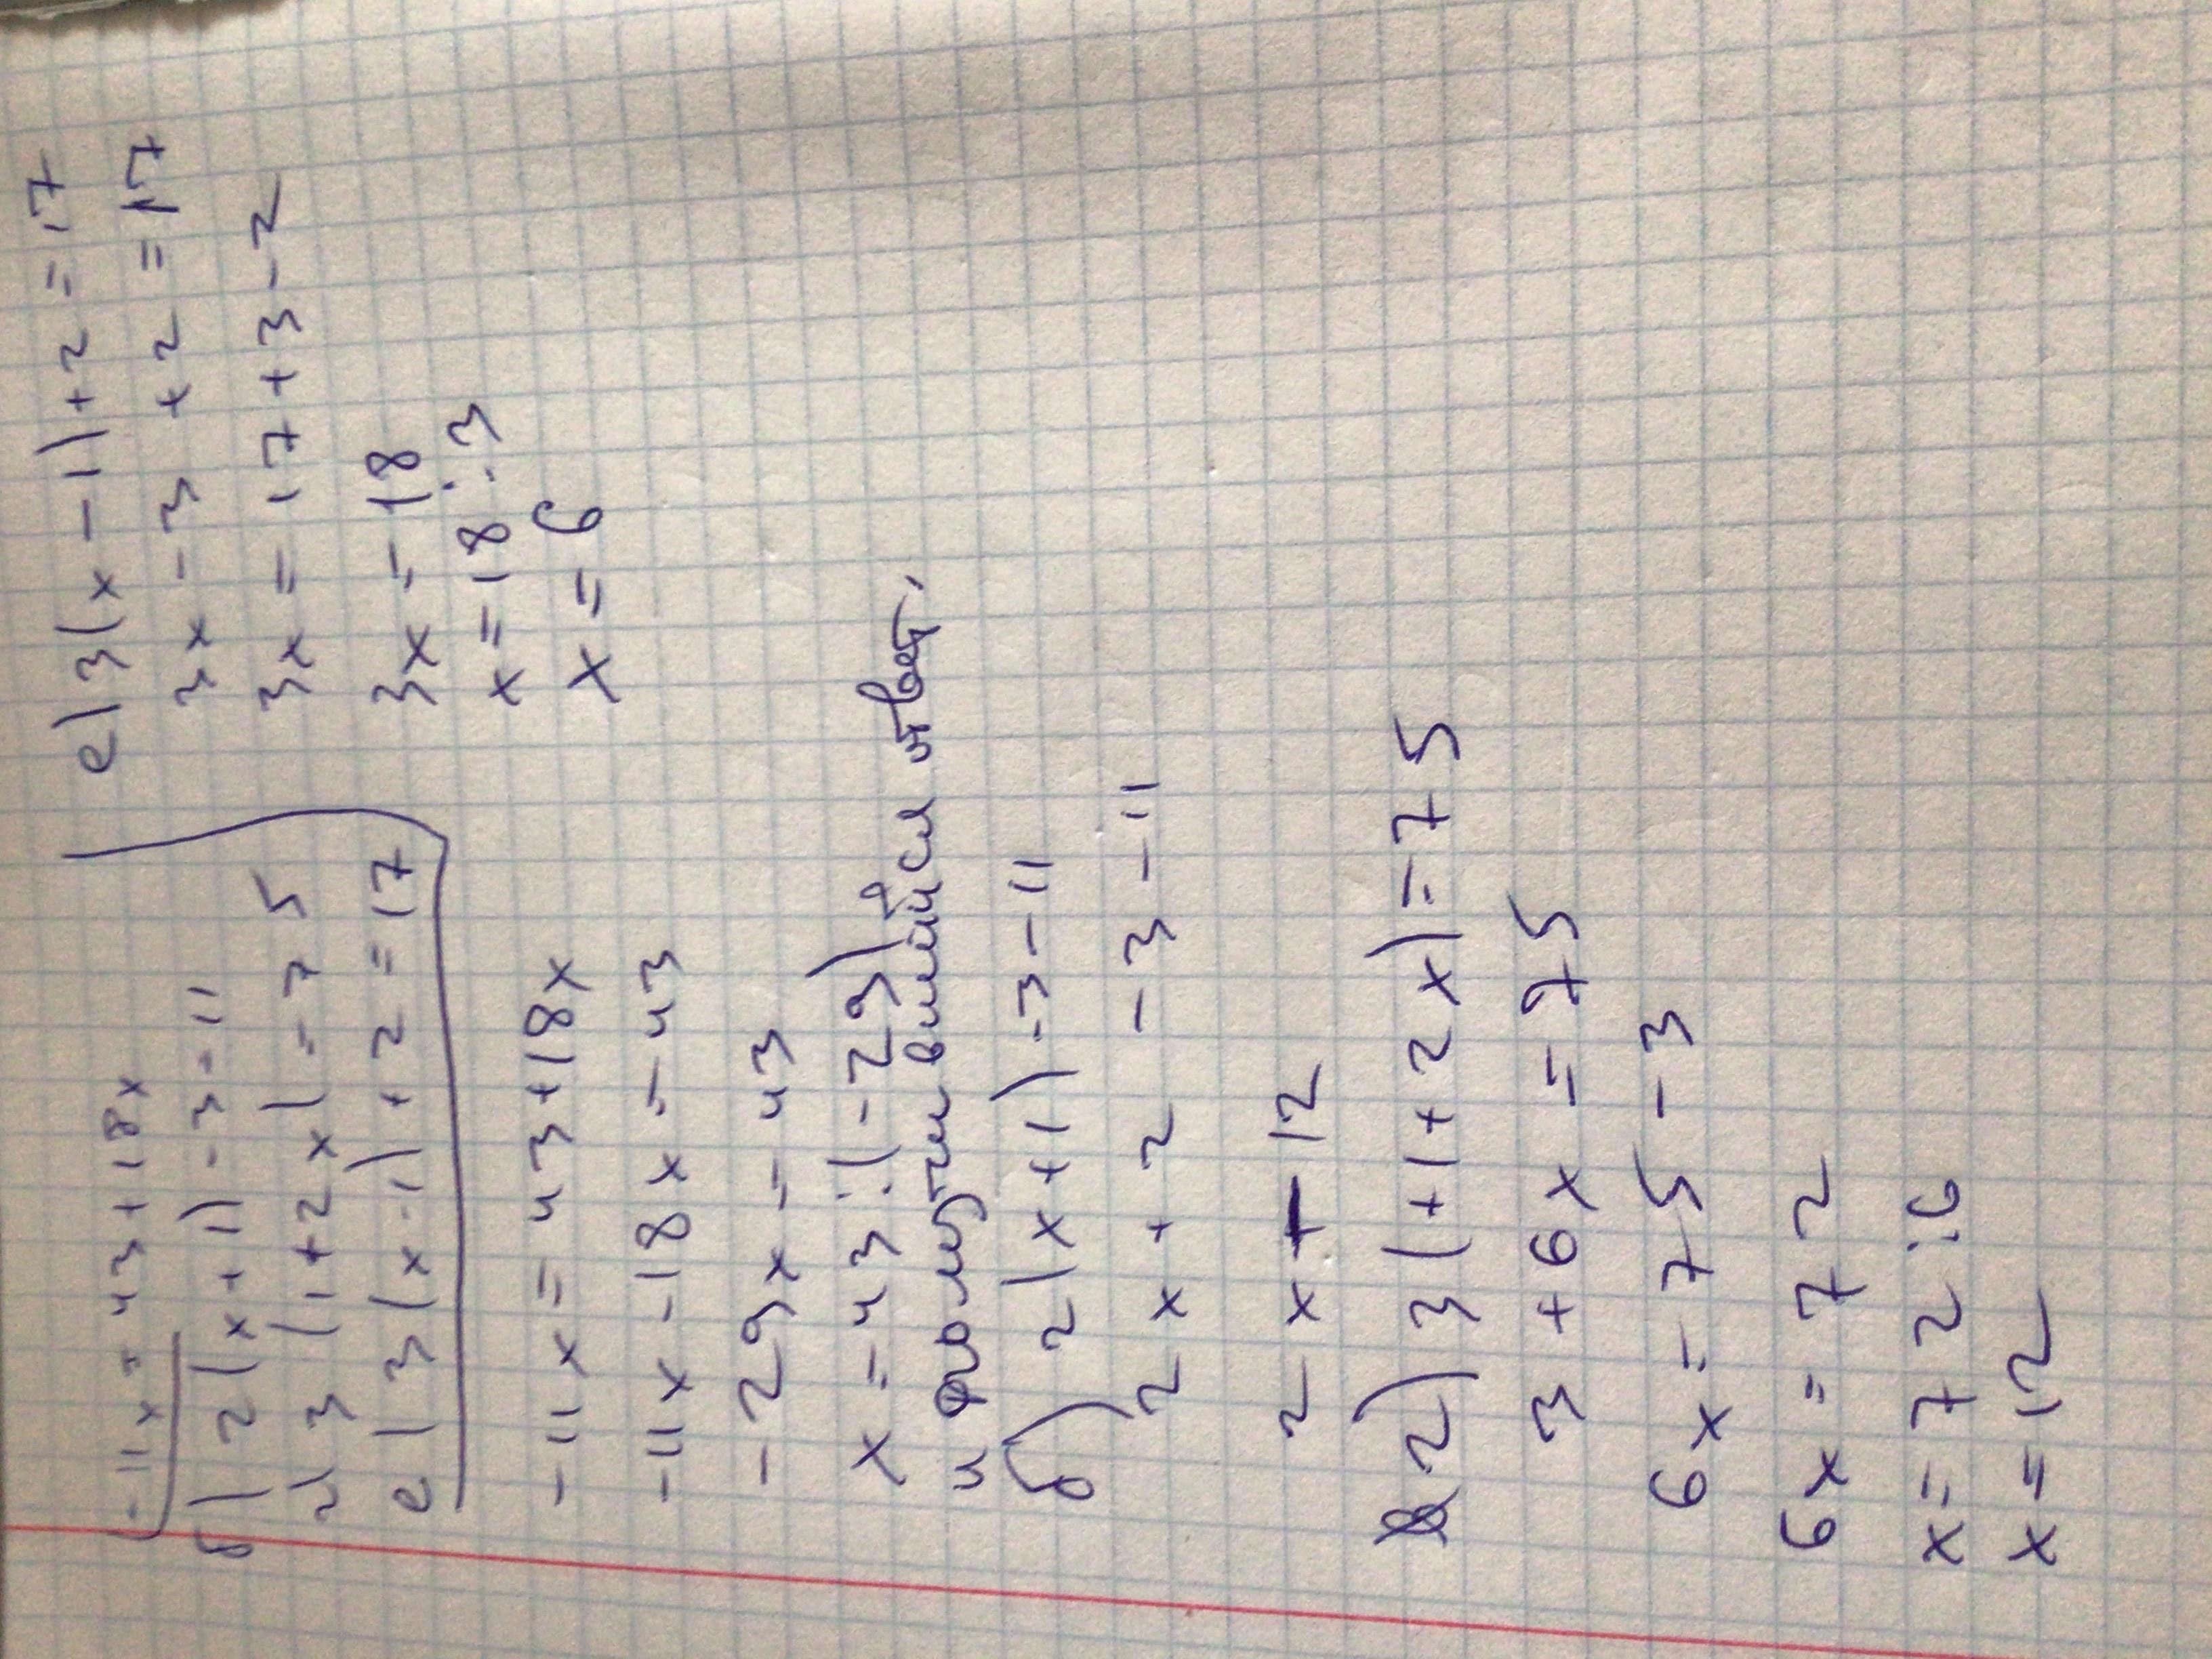 -11x = 43+18x
б) 2(x+1)-3-11
г) 3 (1+2x) = 75
е) 3(x-1)+2=17
-11x = 43+18x
-11x-18x = 43
-29x = 43
x = 43:(-29)
и получившийся ответ.
б) 2(x+1)-3-11
2x + 2 -3-11
2x - 12
г) 3(1+2x)=75
3+6x = 75
6x = 75-3
6x = 72
x=72:6
x=12
е) 3(x-1)+2=17
3x-3+2=17
3x = 17+3-2
3x = 18
x=18:3
x=6